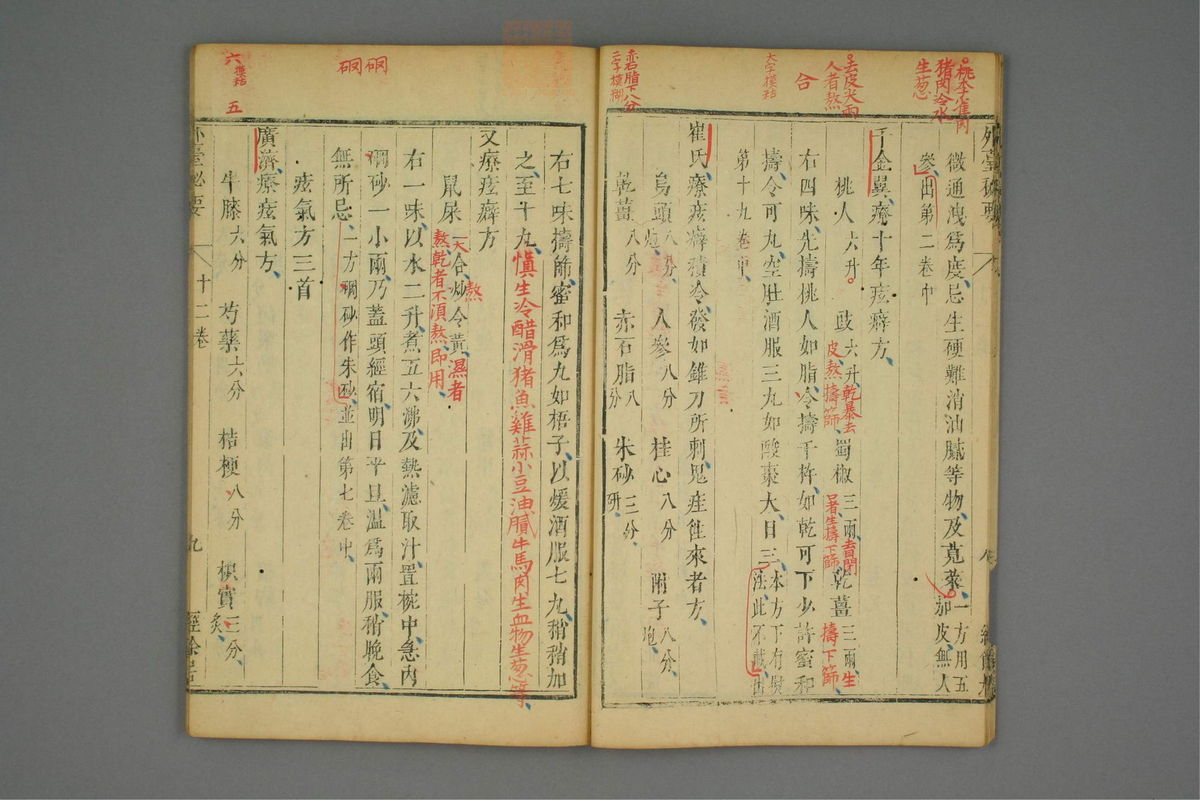 桃李雀肉
猪肉冷水
生葱
去皮尖兩
人者熬
合
大字模糊
赤石脂下八分
二字模糊
微通洩爲度忌生硬難消油膩等物及莧菜一方用五加皮無人
參出第二卷中
千金翼療十年痃癖方
桃人六升 豉六升乾暴去皮熬擣篩 蜀椒三兩 生擣下篩 乾薑三兩生擣下篩
右四味先擣桃人如脂令擣千杵如乾可下少許蜜和
擣令可丸空肚酒服三丸如酸棗大日三本方下有熨法此不載出
第十九卷中
崔氏療痃癖積冷發如錐刀所刺鬼疰往來者方
烏頭八分炮 人參八分 桂心八分 附子八分炮
乾薑八分 赤石脂八分 朱砂三分研
右七味擣篩蜜和爲丸如梧子以煖酒服七丸稍稍加
之至十丸慎生冷醋滑猪魚雞蒜小豆油膩牛馬肉生血物生葱等
又療痃癖方
鼠屎一大合炒令黃熬濕者熬乾者不須熬即用
右一味以水二升煮五六沸及熱濾取汁置椀中急內
硇砂一小兩乃蓋頭經宿明日平旦溫爲兩服稍晚食
無所忌一方硇砂作朱砂並出第七卷中
痃氣方三首
廣濟療痃氣方
牛膝六分 芍藥六分 桔梗八分 枳實三分炙
外臺祕要 十二卷 九 經餘居
六模糊
五